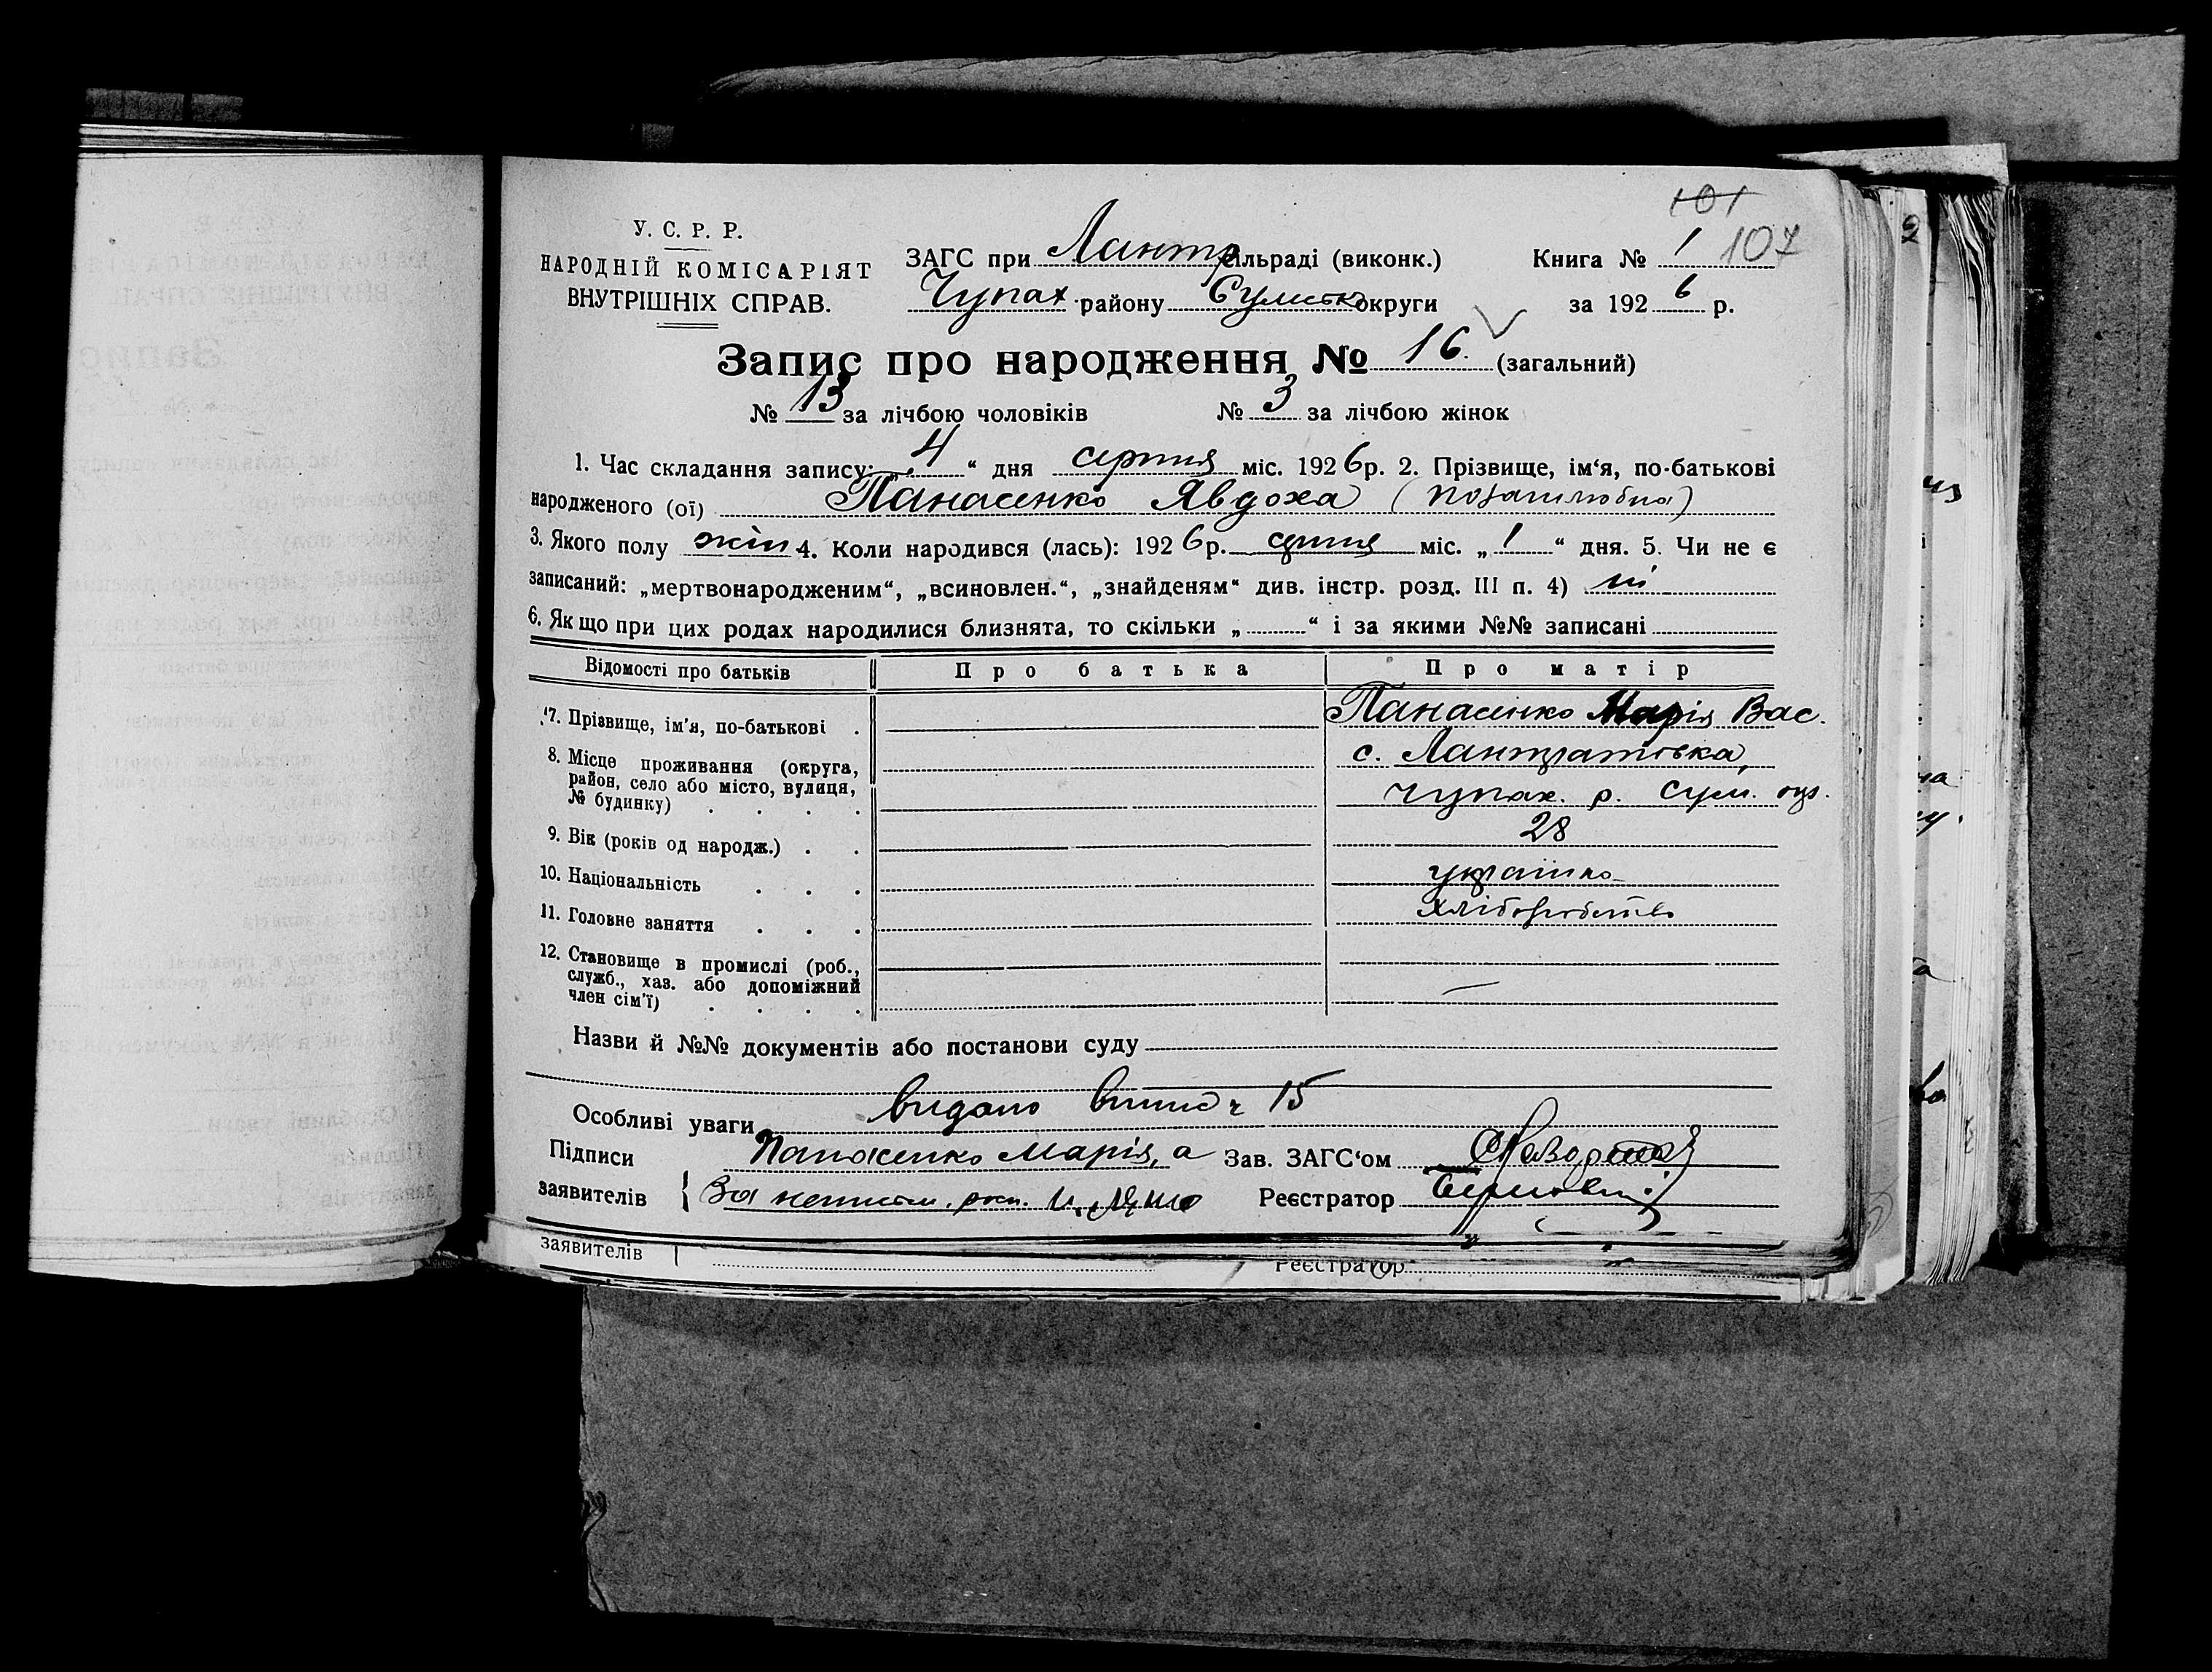 101
107
У. С. Р. Р.
НАРОДНІЙ КОМІСАРІЯТ
ВНУТРІШНІХ СПРАВ.
ЗАГС при Лантр сільраді (виконк.)
Чупах. району Сумськ округи
Книга № 1
за 192 6 р.
Запис про народження № 16. (загальний)
№ 13 за лічбою чоловіків № 3 за лічбою жінок
1. Час складання запису: „ 4 “ дня серпня міс. 192 6 р. 2. Прізвище, ім‘я, по-батькові
народженого (ої) Панасенко Явдоха (позашлюбна)
3. Якого полу жін 4. Коли народився (лась): 192 6 р. серпня міс. „ 1 “ дня. 5. Чи не є
записаний: „мертвонародженим“, „всиновлен.“, „знайденям“ див. інстр. розд. III п. 4) ні
6. Якщо при цих родах народилися близнята, то скільки „ “ і за якими №№ записані
Відомості про батьків Про батька Про матір
7. Прізвище, ім‘я, по-батькові . Панасенко Марія Вас.
8. Місце проживання (округа, с. Лантратівка,
район, село або місто, вулиця,
№ будинку) . . . . Чупах. р. Сум. окр.
9. Вік (років од народж.) . . 28
10. Національність . . . українка
11. Головне заняття . . . хліборобство
12. Становище в промислі (роб.,
служб., хаз. або допоміжний
член сім‘ї) . . . . —
Назви й №№ документів або постанови суду
Особливі уваги видано 15
Підписи Панасенко Марія, а Зав. ЗАГС‘ом
заявителів { За Реєстратор
заявителів
Реєстратор